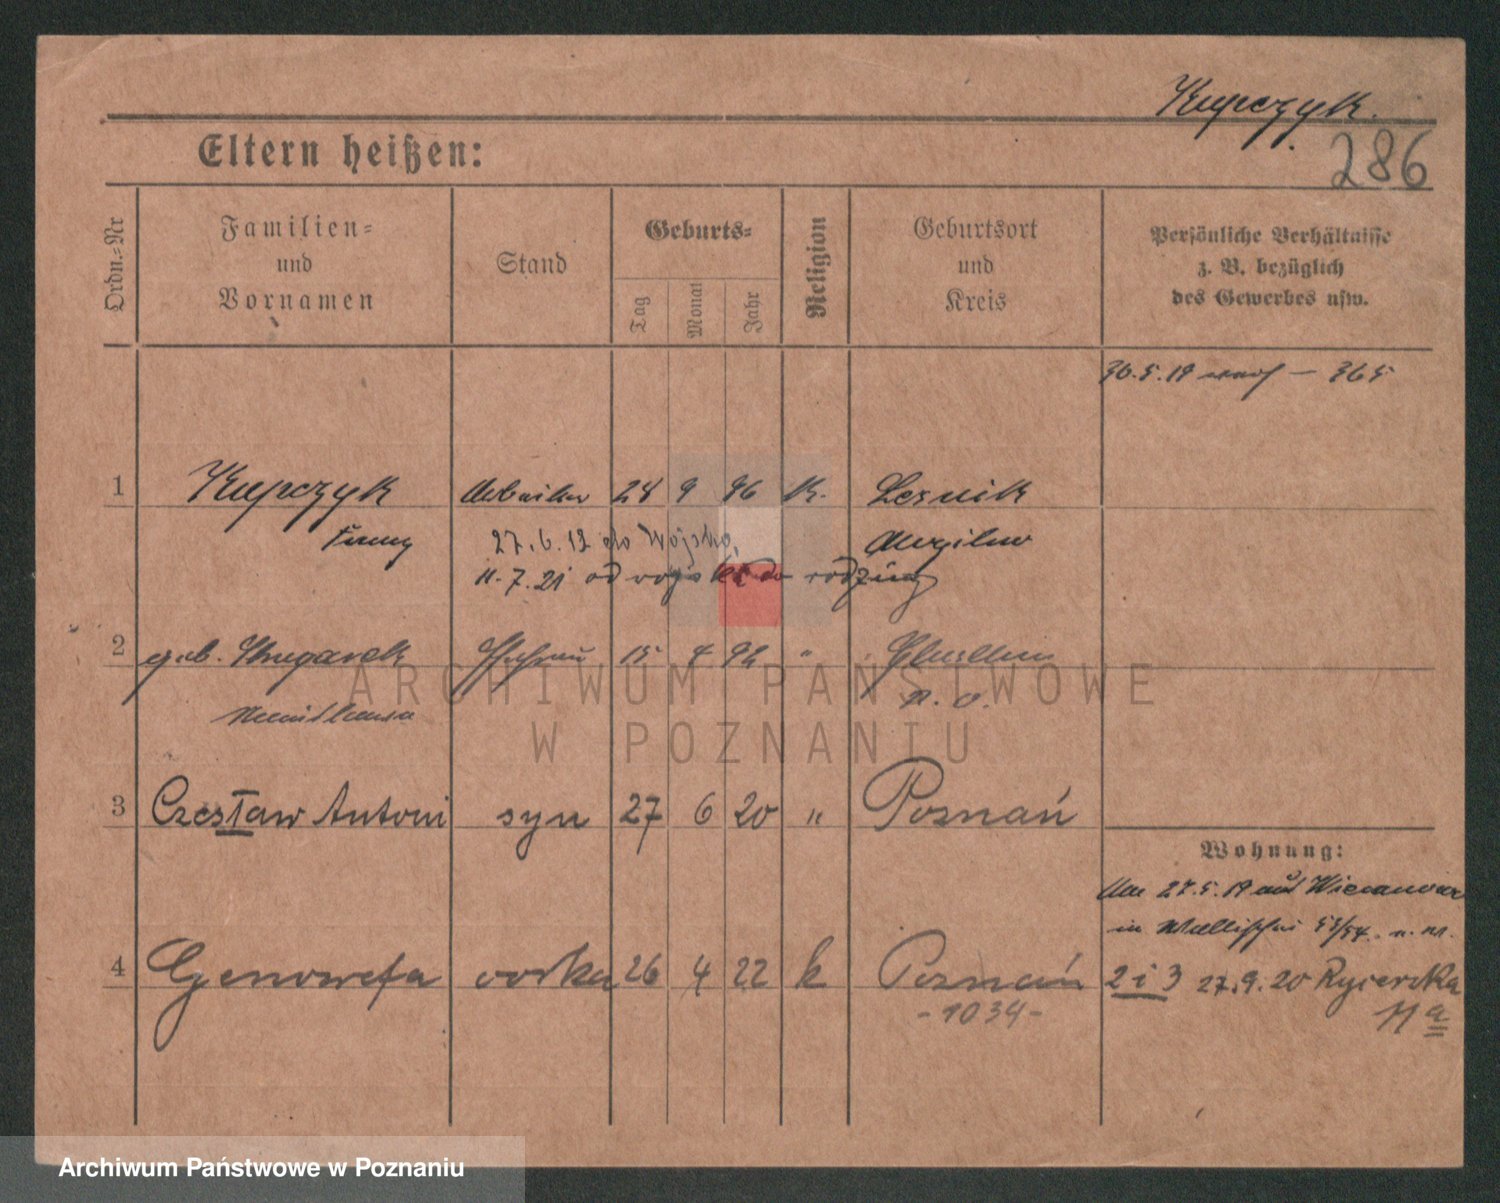 Kupczyk.
286
Eltern heißen:
Ordn.=Nr
Familien=
und
Vornamen
Stand
Geburts=
Tag
Monat
Jahr
Religion
Geburtsort
und
Kreis
Persönliche Verhältnisse
z. B. bezüglich
des Gewerbes usw.
30.5.19 – 365
1 Kupczyk Arbeiter 24 9 96 K.
Franz 27.6.19 do Wojska,
11.7.21 od wojska do rodziny
2 geb. 15 4 92 "
n. o.
3 Czesław Antoni syn 27 6 20 " Poznań
Wohnung:
Am 27.5.19 aus
in Wallischei 53/54. n. W.
4 Genowefa corka 26 4 22 k Poznań
-1034-
2 i 3 27.9.20 Rycerska
11 a
ARCHIWUM PAŃSTWOWE
W POZNANIU
Archiwum Państwowe w Poznaniu